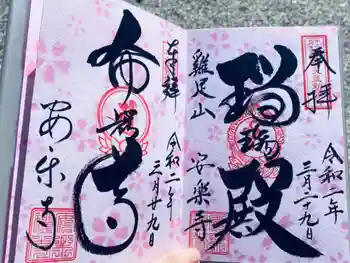 奉拝
令和二年
三月二十九日
瑠璃殿
雞足山
安楽寺
奉拝
令和二年
三月廿九日
安楽寺